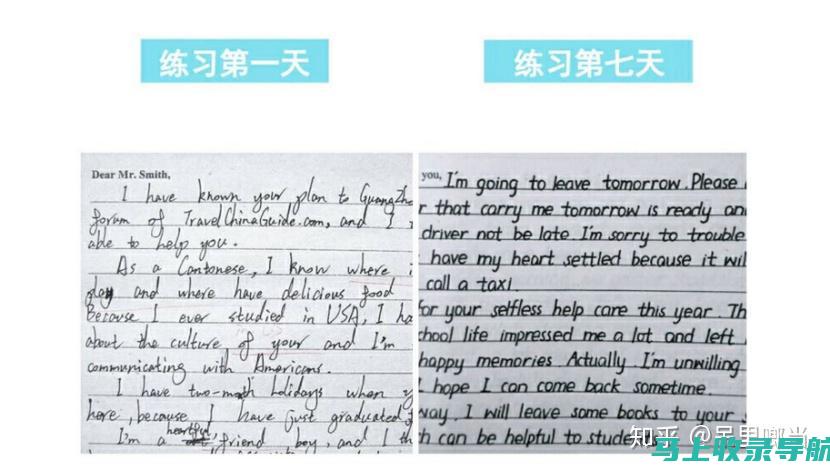 练习第一天
练习第七天
Dear Mr. Smith,
I have known your plan to Guangzho
forum of TravelChinaGuide.com, and I
able to help you.
As a Cantonese, I know where
play and where have delicious food
Because I ever studied in USA, I ha
about the culture of your and I'm
communicating with Americans.
I have two-month holidays when y
here, because I have just graduated f
heartful
I'm a friend boy, and I th
you, I'm going to leave tomorrow. Please
r that carry me tomorrow is ready an
driver not be late I'm sorry to trouble
have my heart settled because it wil
call a taxi
for your selfless help care this year. Th
chool life impressed me a lot and left
happy memories Actually. I'm unwilling
I hope I can come back sometime.
way, I will leave some books to your
h can be helpful to students
知乎 @吊里啷当
马上收录导航